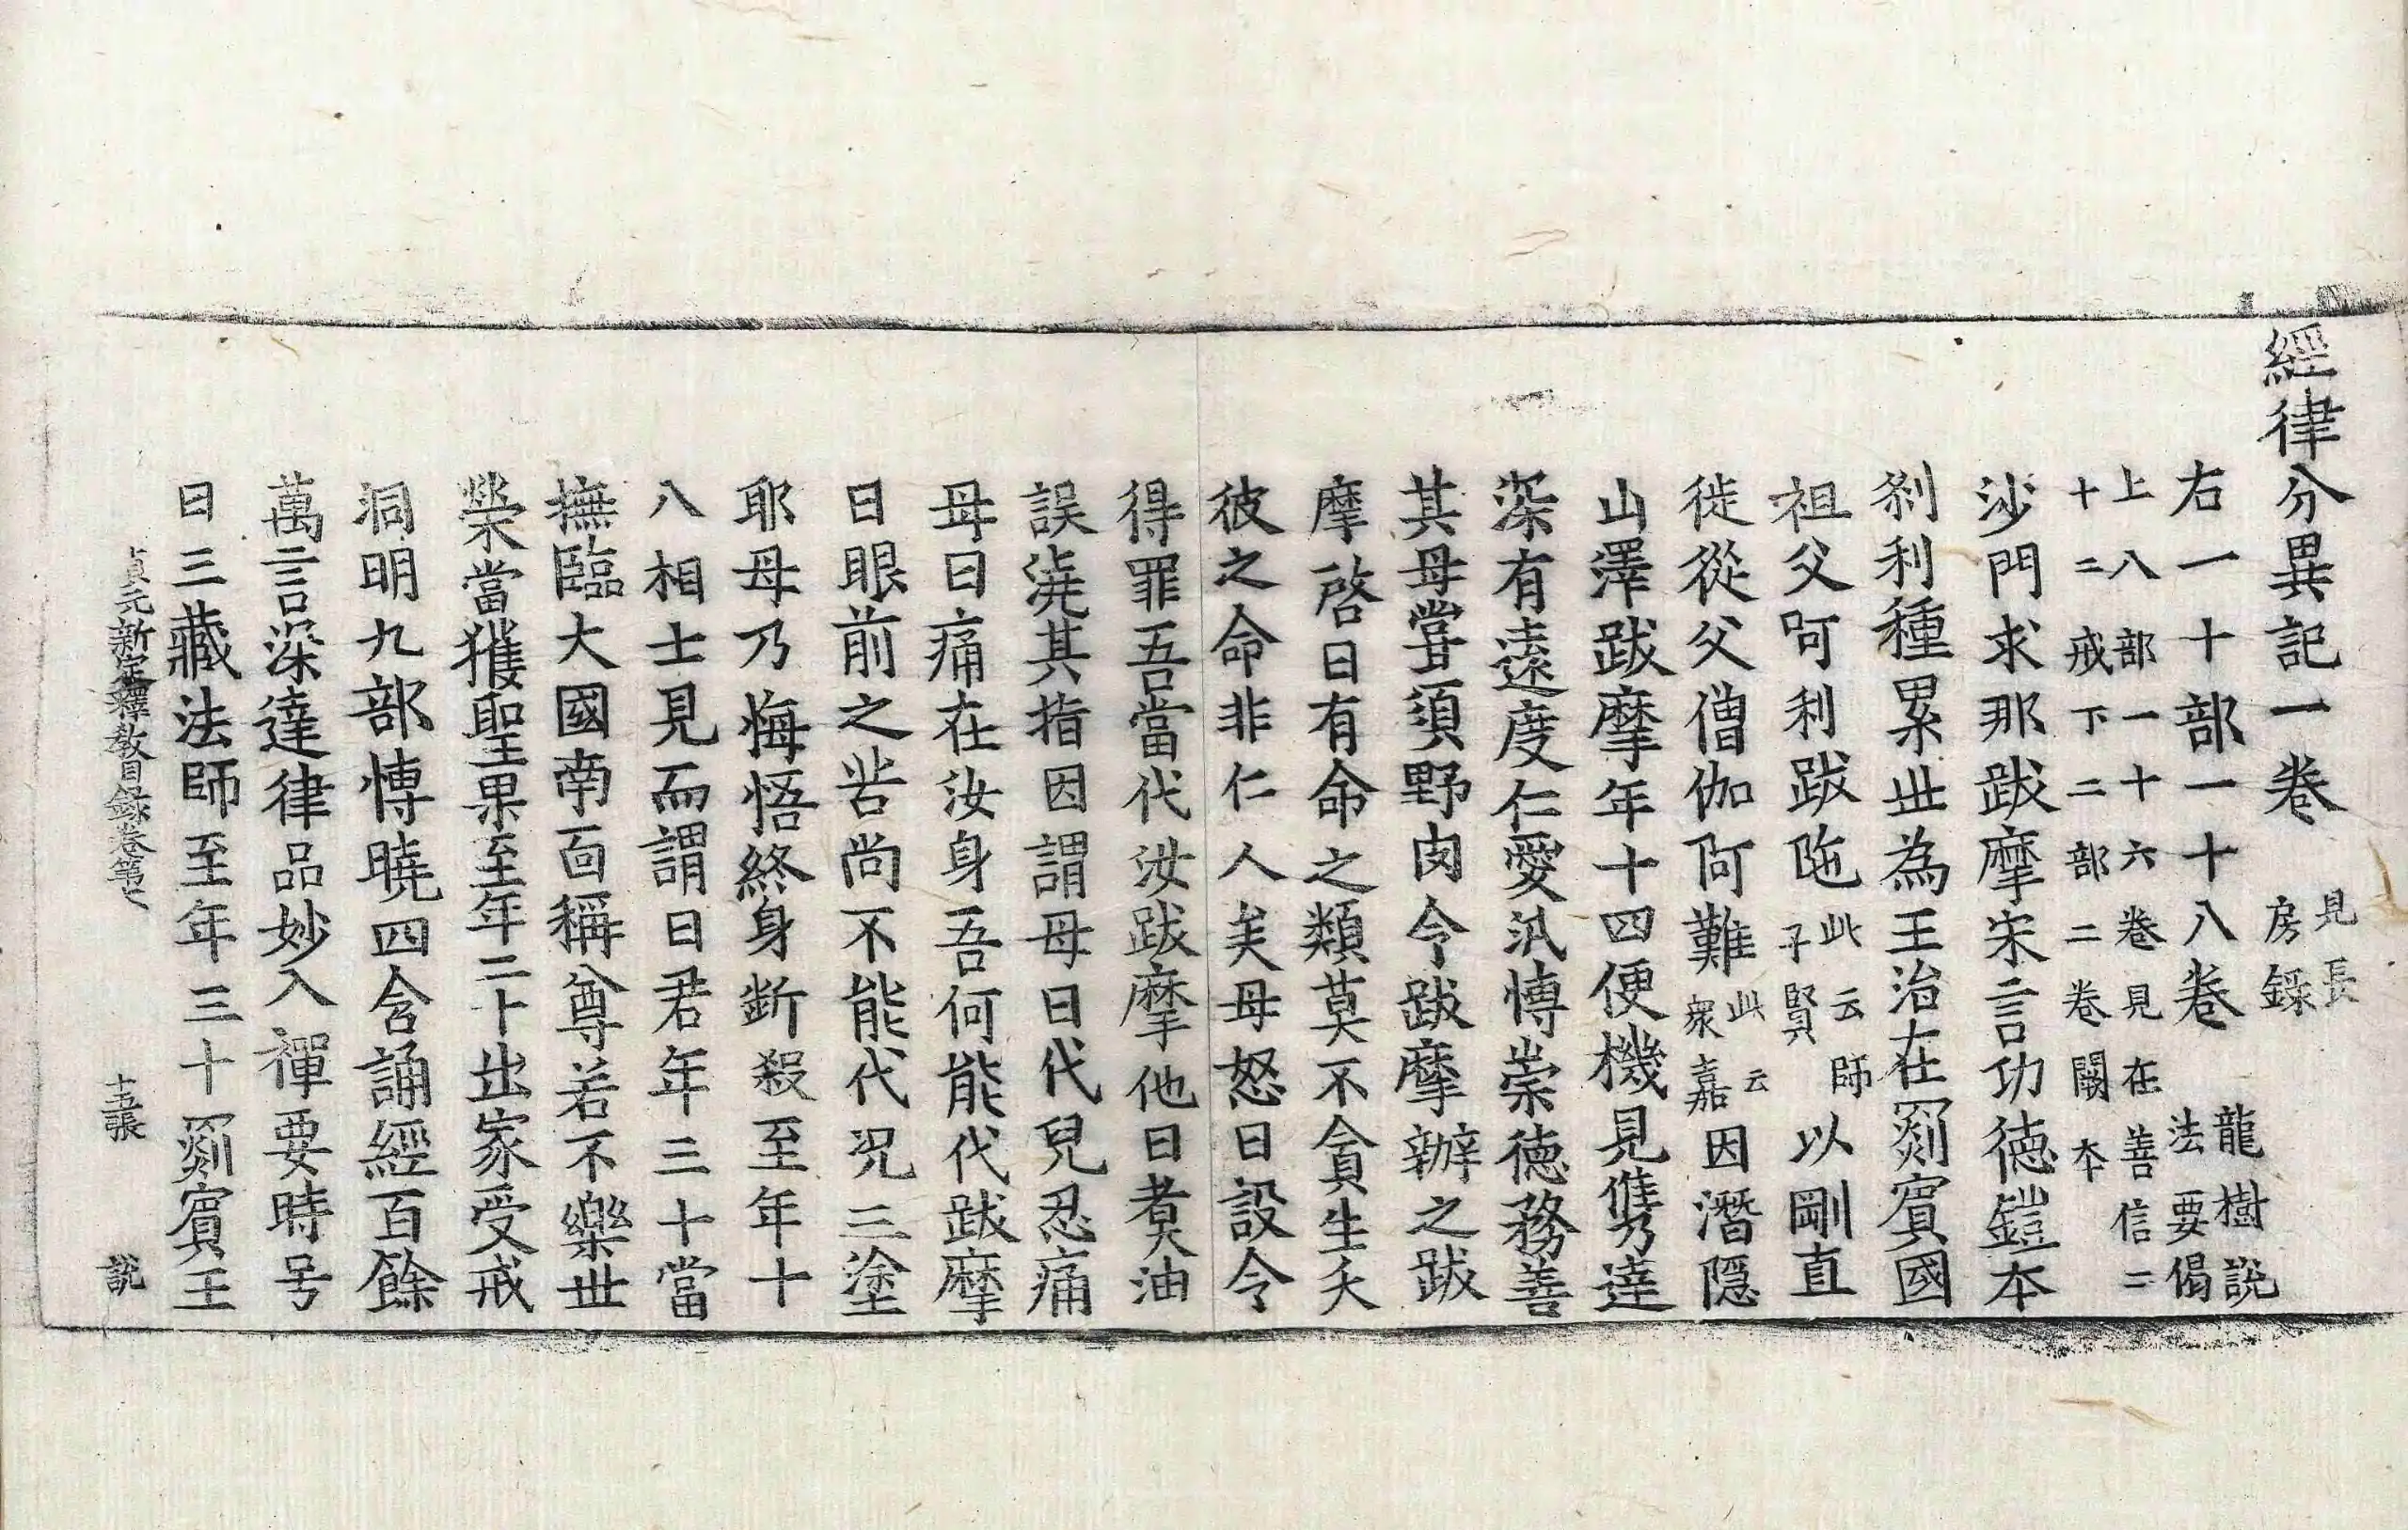 經律分異記一卷 見長房錄
右一十部一十八卷 龍樹說法要偈
上八部一十六卷見在善信二
十二戒下二部二卷闕本
沙門求那跋摩宋言功德鎧本
剎利種累世為王治在罽賓國
祖父呵利跋陁此云師子賢以剛直
徙從父僧伽阿難此云衆嘉因潛隱
山澤跋摩年十四便機見儁達
深有遠度仁愛汎愽崇德務善
其母甞須野肉令跋摩辦之跋
摩啓曰有命之類莫不貪生夭
彼之命非仁人矣母怒曰設令
得罪吾當代汝跋摩他日煑油
誤澆其指因謂母曰代兒忍痛
母曰痛在汝身吾何能代跋摩
曰眼前之苦尚不能代况三塗
耶母乃悔悟終身斷殺至年十
八相士見而謂曰君年三十當
撫臨大國南面稱尊若不樂世
榮當獲聖果至年二十出家受戒
洞明九部愽曉四含誦經百餘
萬言深達律品妙入禪要時号
曰三藏法師至年三十罽賓王
貞元新定釋教目録卷第七 十五張 說